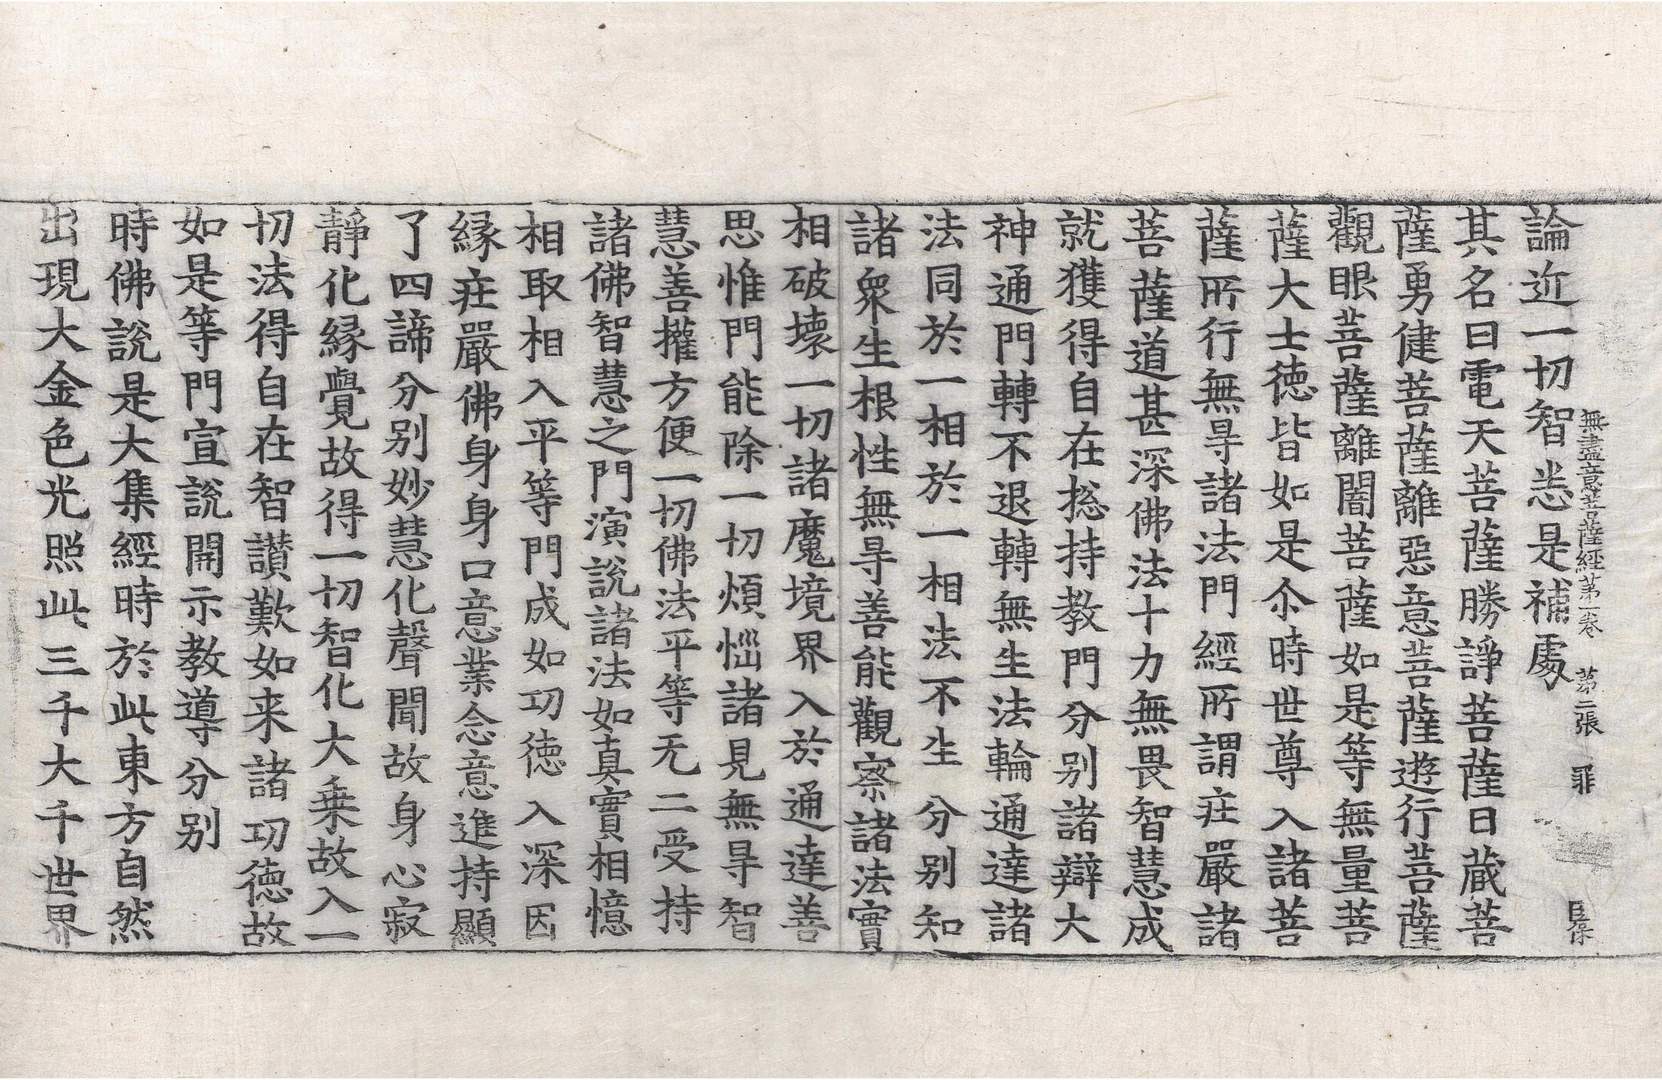 無盡意菩薩經第一卷　第二張　罪
論近一切智悉是補處
其名曰電天菩薩勝諍菩薩日蔵菩
薩勇健菩薩離惡意菩薩遊行菩薩
觀眼菩薩離闇菩薩如是等無量菩
薩大士徳皆如是尒時世尊入諸菩
薩所行無㝵諸法門經所謂莊嚴諸
菩薩道甚深佛法十力無畏智慧成
就獲得自在揔持教門分别諸辯大
神通門轉不退轉無生法輪通達諸
法同於一相於一相法不生分别知
諸衆生根性無㝵善能觀察諸法實
相破壊一切諸魔境界入於通達善
思惟門能除一切煩惱諸見無㝵智
慧善權方便一切佛法平等无二受持
諸佛智慧之門演説諸法如真實相憶
相取相入平等門成如㓛徳入深因
縁莊嚴佛身身口意業念意進持顯
了四諦分别妙慧化聲聞故身心寂
靜化縁覺故得一切智化大乗故入一
切法得自在智讃歎如来諸㓛徳故
如是等門宣説開示教導分别
時佛説是大集經時於此東方自然
出現大金色光照此三千大千世界